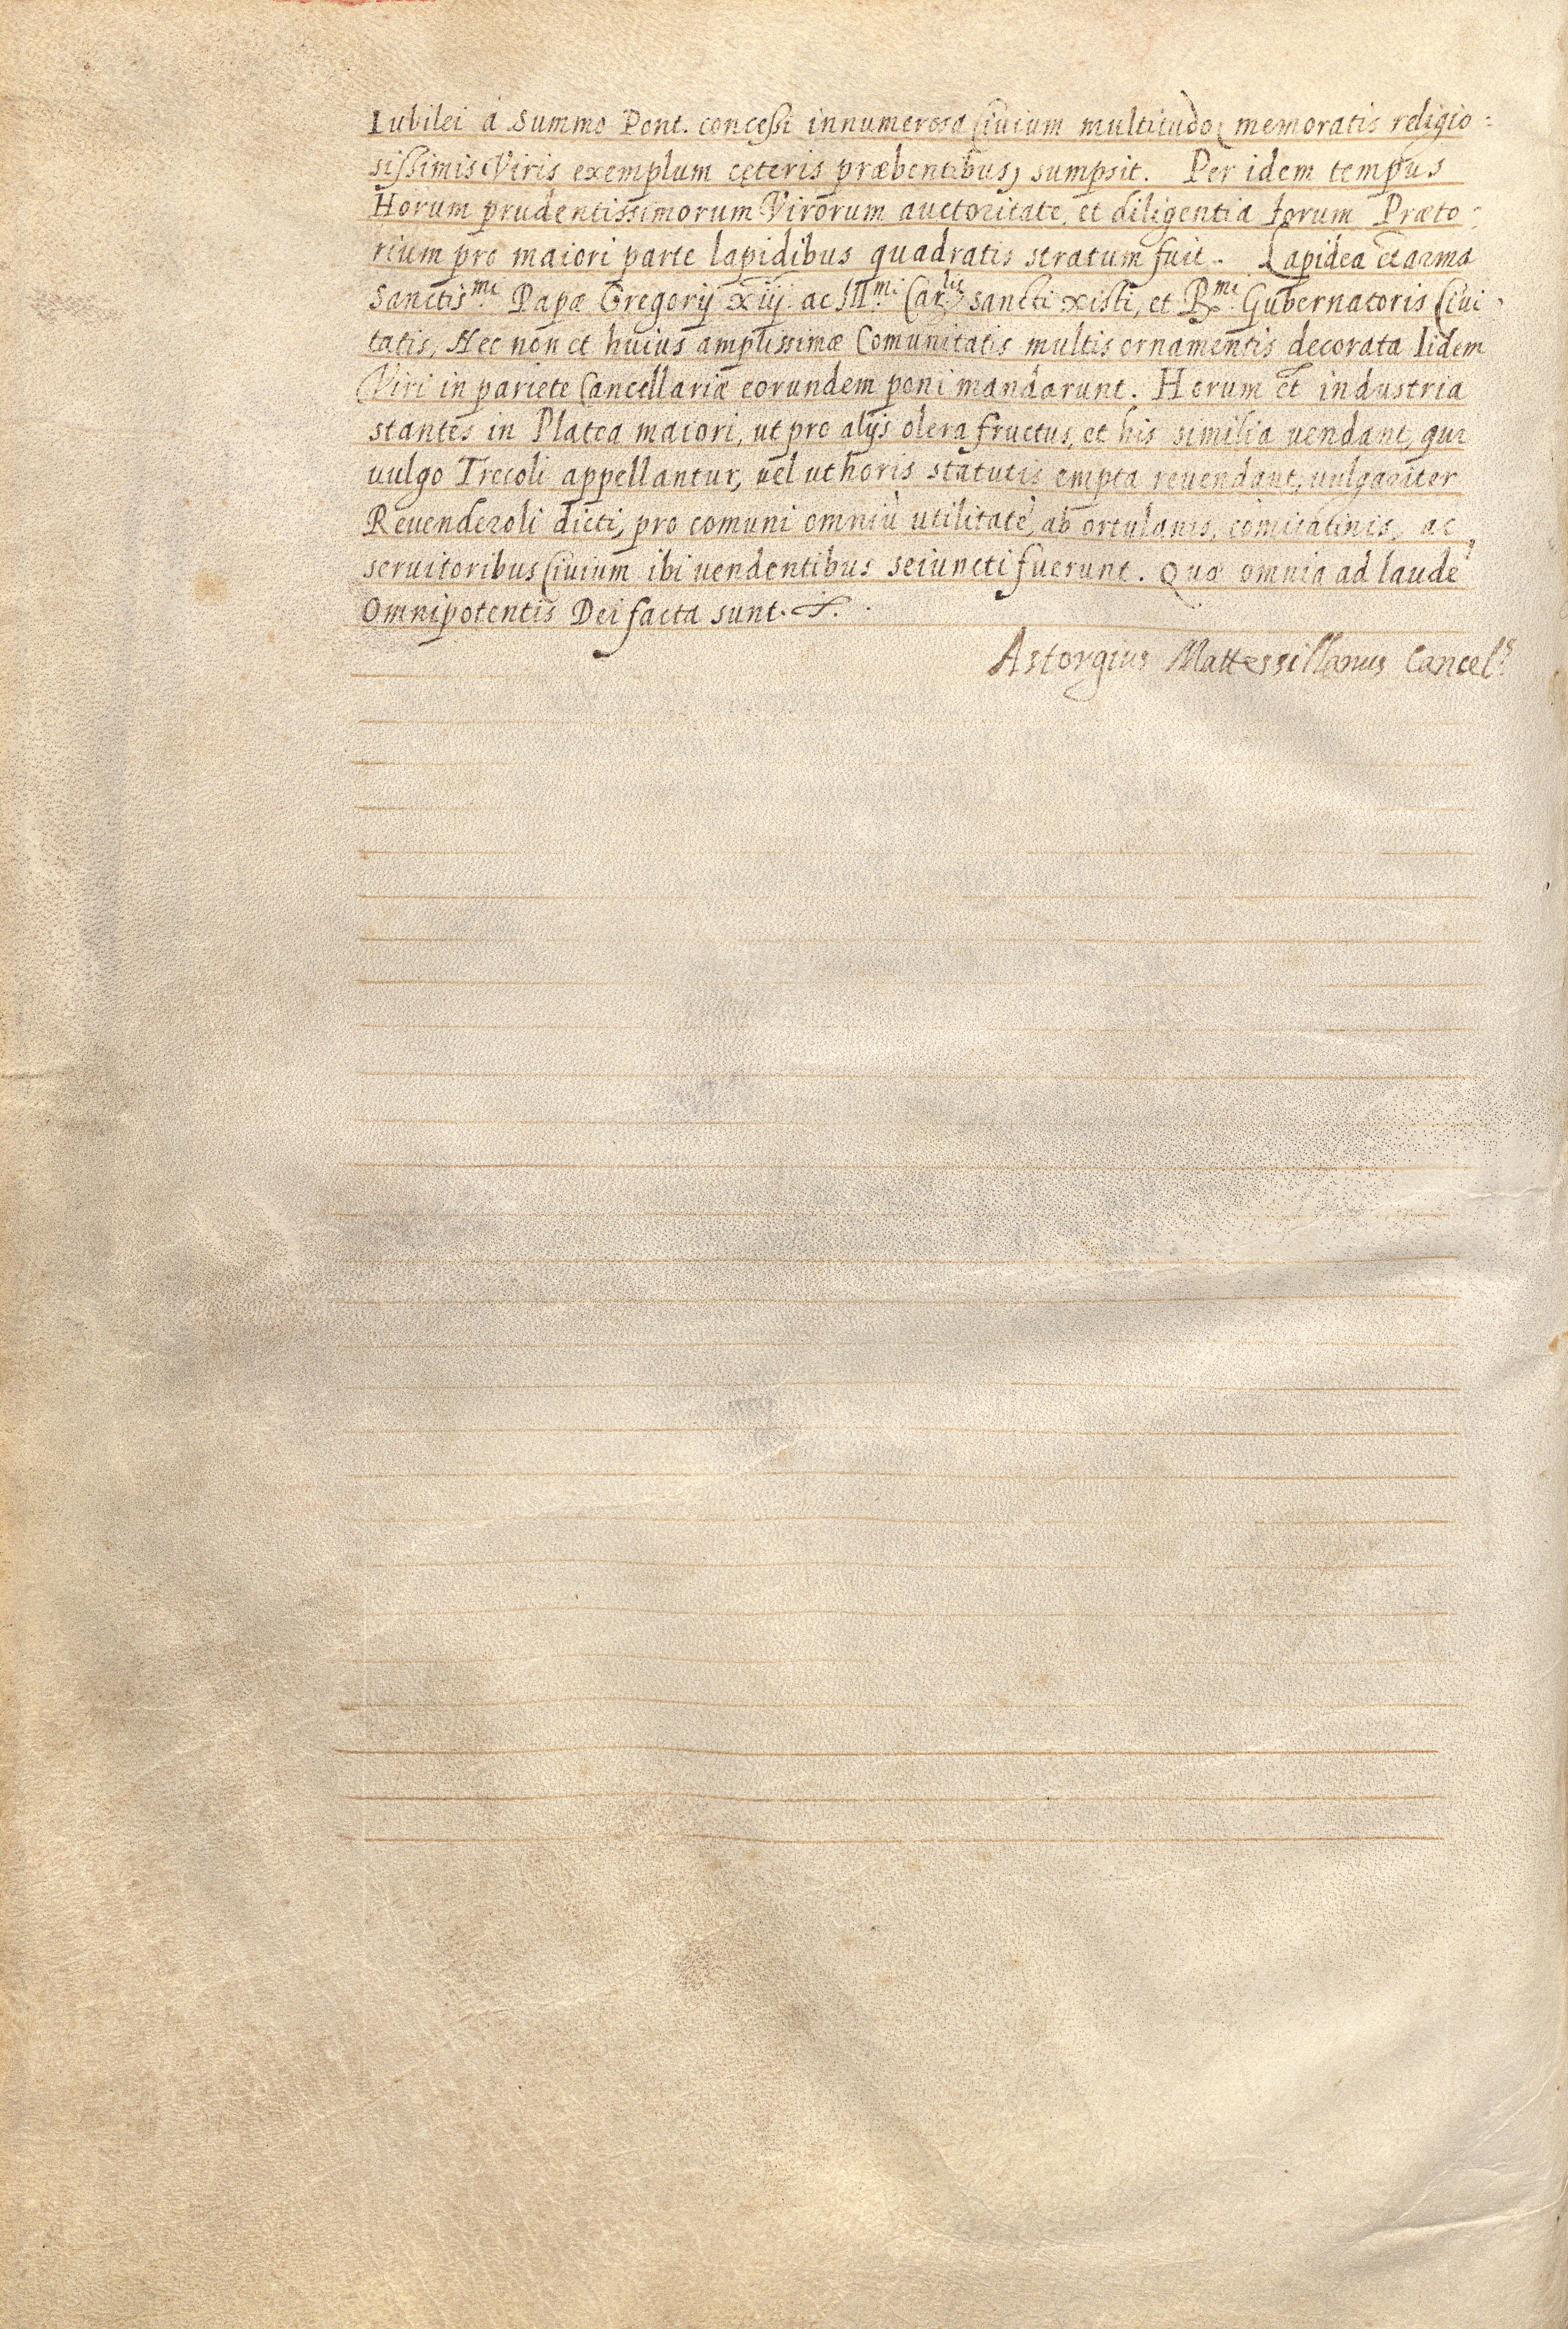 Iubilei à Summo Pont. concessi innumerosa Ciuium multitudo (memoratis religio=
sissimis Viris exemplum cęteris præbentibus) sumpsit. Per idem tempus
Horum prudentissimorum Virorum auctoritate, et diligentia forum Præto=
rium pro maiori parte lapidibus quadratis stratum fuit. Lapidea et arma
Sanctis.mi Papæ Gregorij xiij ac Ill.mi Car.lis sancti xisti, et R.mi Gubernatoris Ciui
tatis, Nec non et huius amplissimæ Comunitatis multis ornamentis decorata Iidem
Viri in pariete Cancellariæ eorundem poni mandarunt. Horum et industria
stantes in Platea maiori, ut pro alijs olera fructus, et his similia uendant, qui
uulgo Trecoli appellantur, uel ut horis statutis empta reuendant, uulgariter
Reuenderoli dicti, pro comuni omniū utilitate, ab ortulanis, comitatinis, ac
seruitoribus Ciuium ibi uendentibus seiuncti fuerunt. Quæ omnia ad laudē
Omnipotentis Dei facta sunt.
Astorgius Mattessillanus Cancel.s